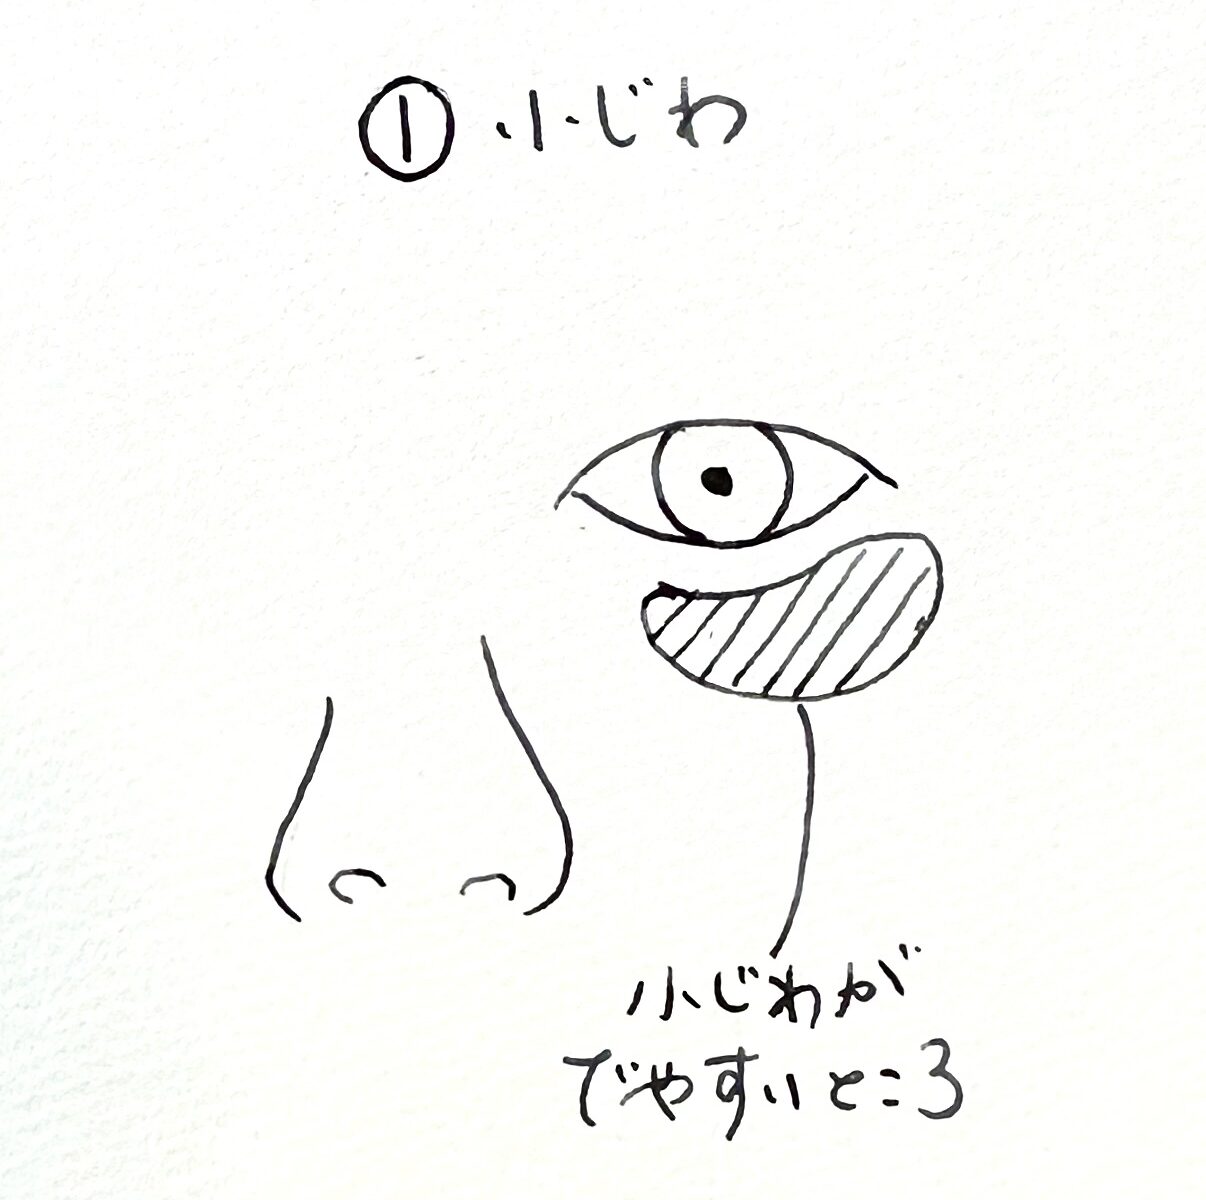 ① 小じわ
小じわが
でやすいところ